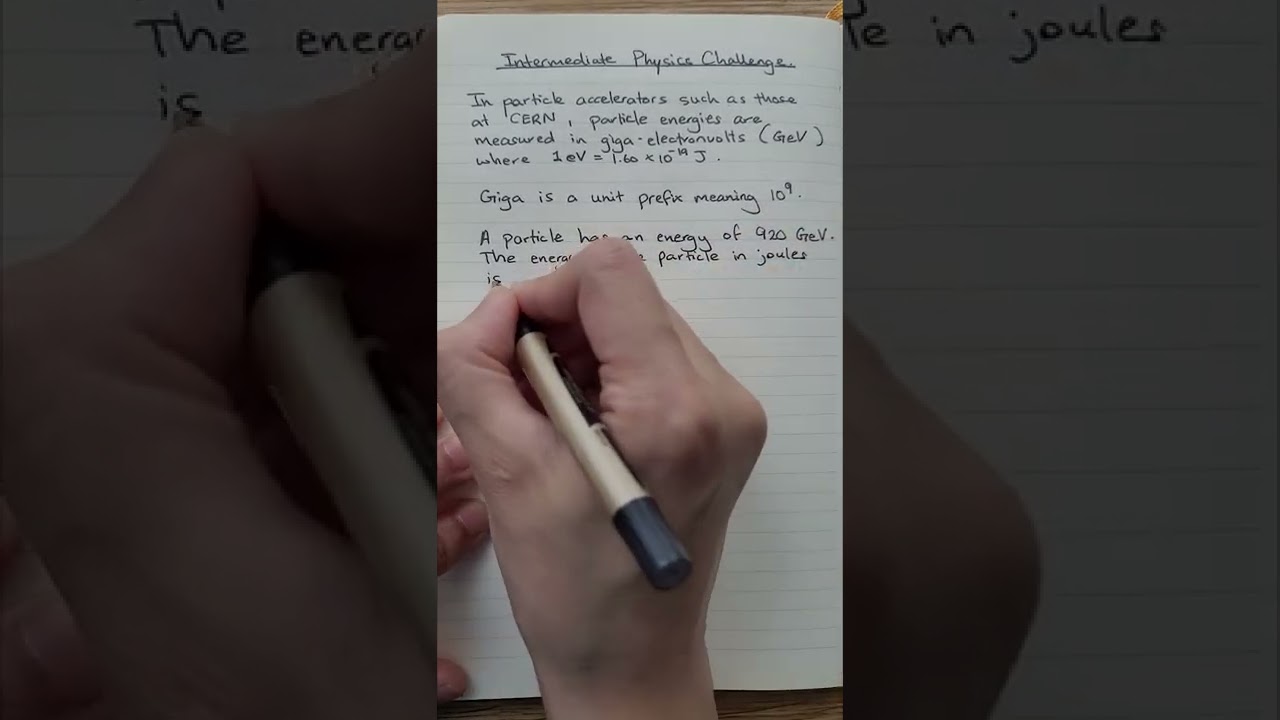 Intermediate Physics Challenge.
In particle accelerators such as those
at CERN, particle energies are
measured in giga-electronvolts (GeV)
where 1eV = 1.60 × 10⁻¹⁹ J.
Giga is a unit prefix meaning 10⁹.
A particle has an energy of 920 GeV.
The particle in joules
is